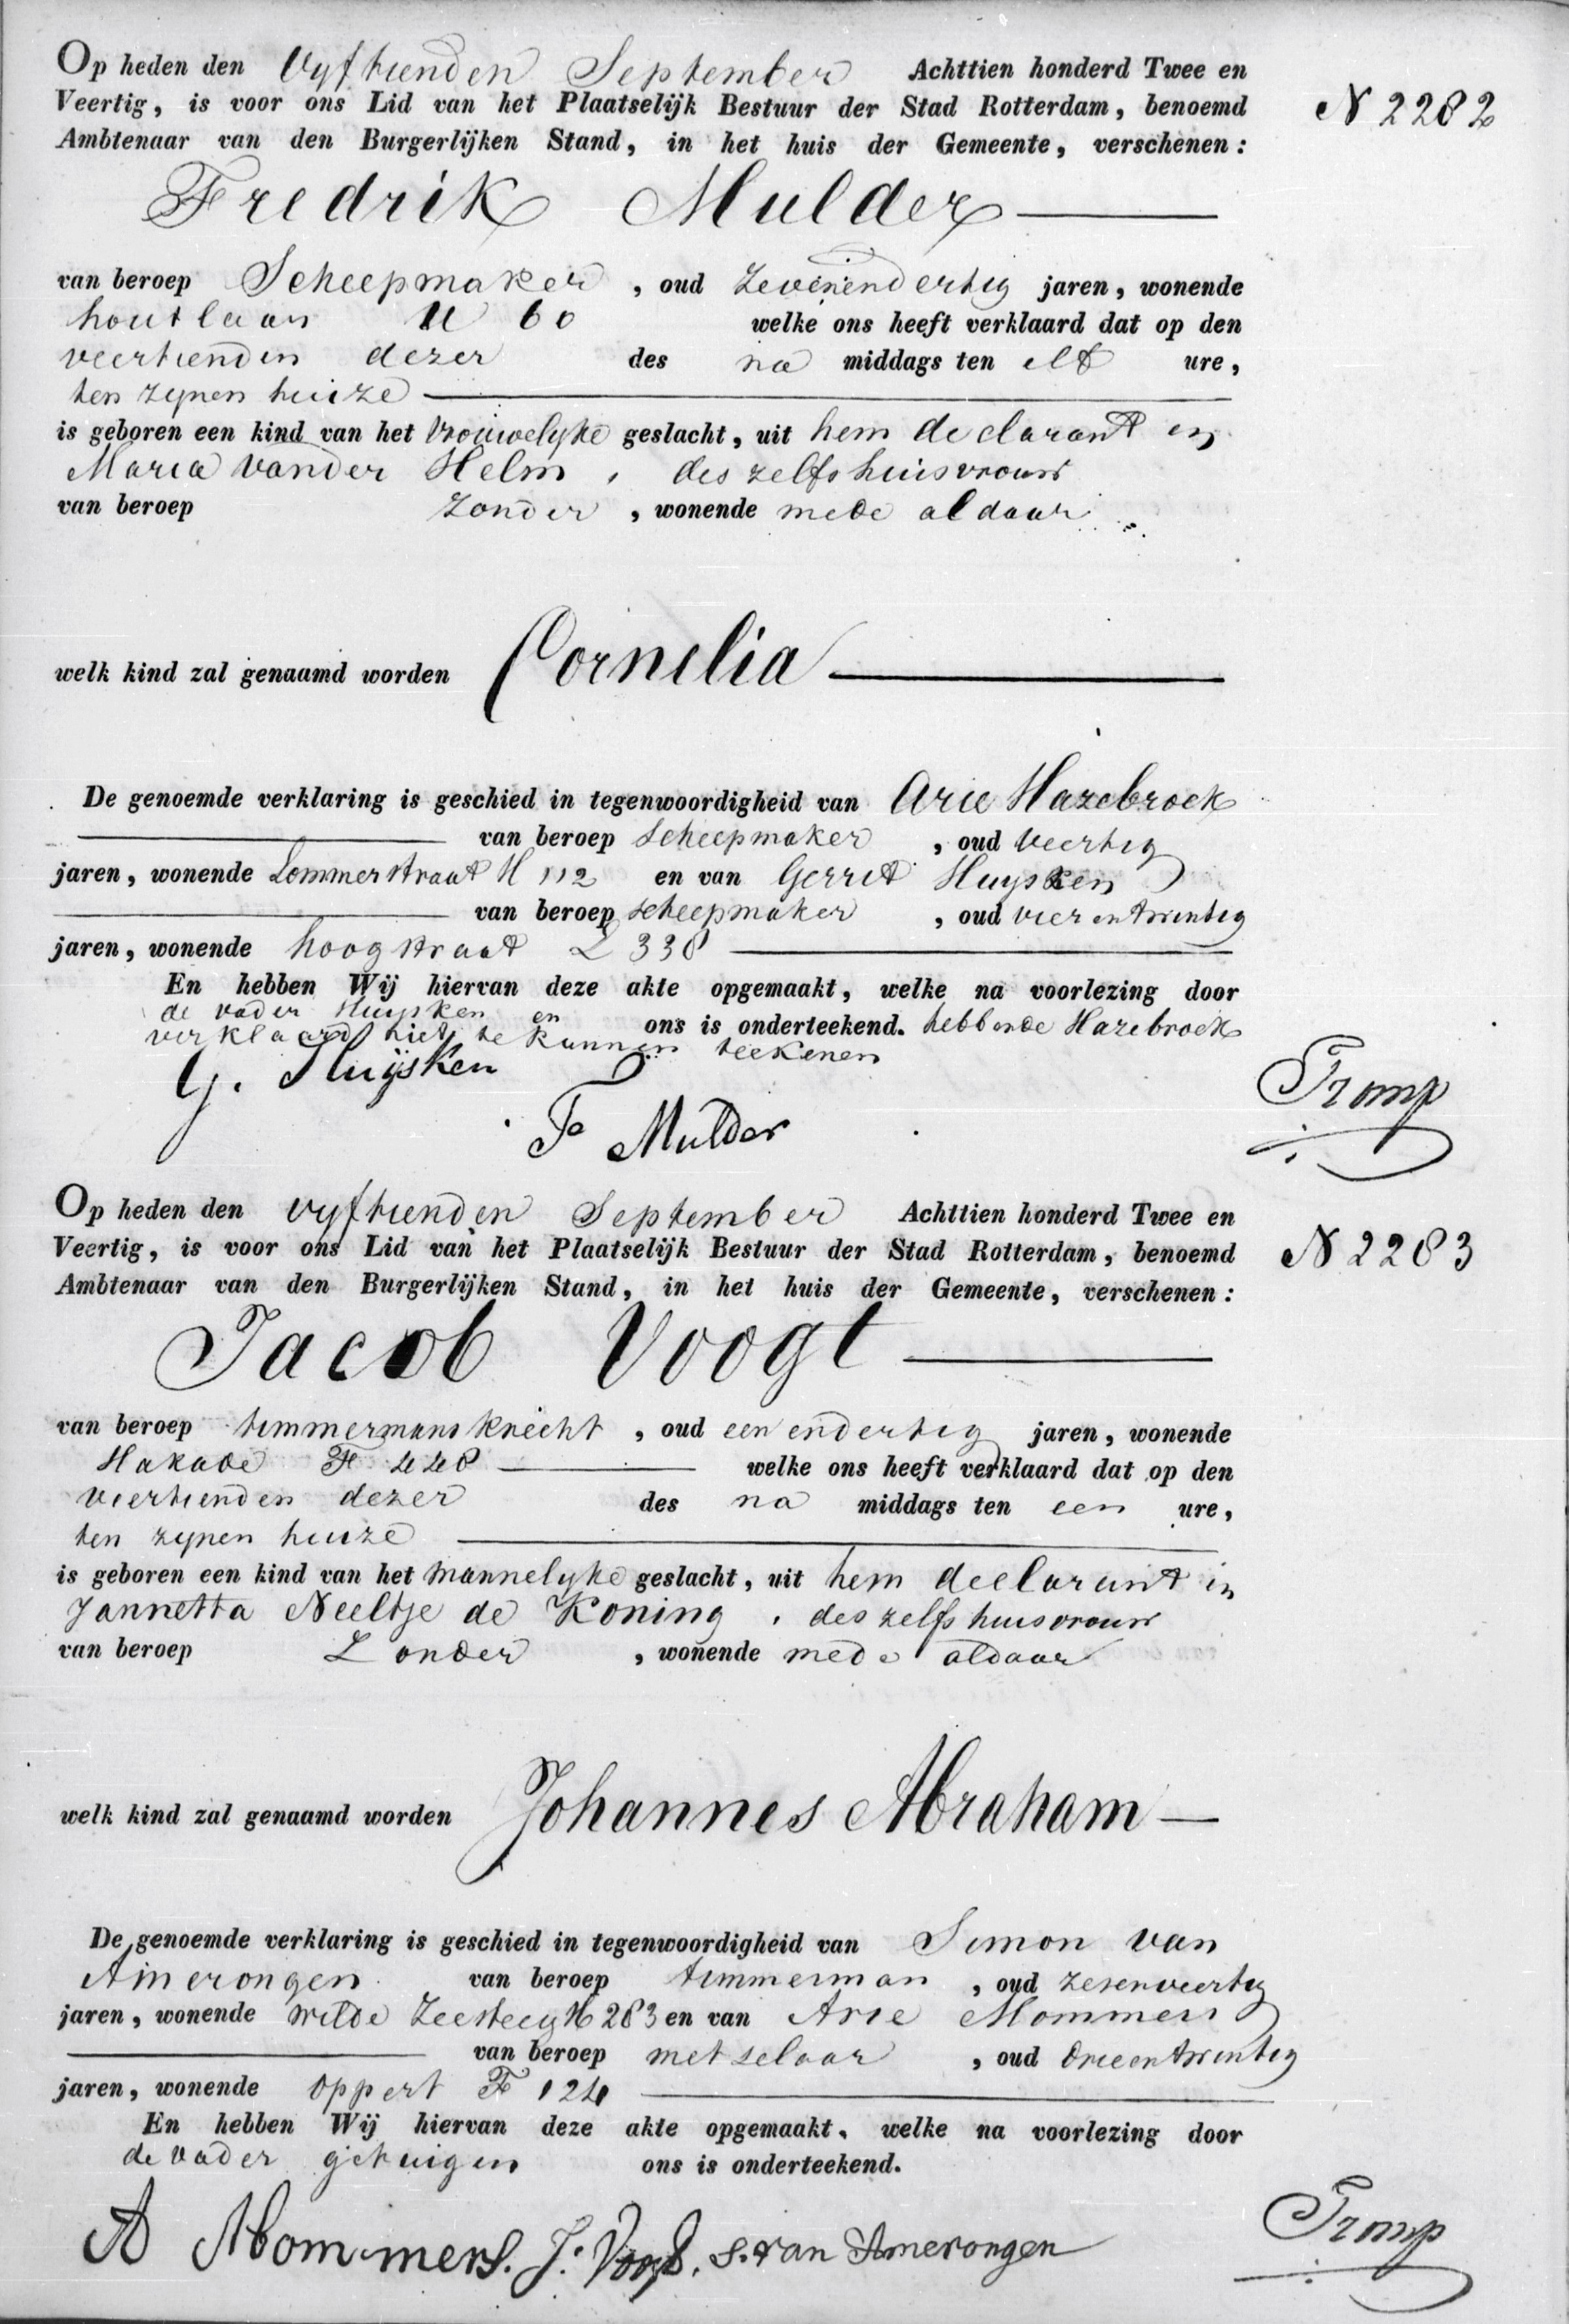 Op heden den vyftienden September Achttien honderd Twee en
Veertig, is voor ons Lid van het Plaatselijk Bestuur der Stad Rotterdam, benoemd
N 2282
Ambtenaar van den Burgerlijken Stand, in het huis der Gemeente, verschenen:
Fredrik Mulder
van beroep Scheepmaker, oud zevenendertig jaren, wonende
houtlaan 60 welke ons heeft verklaard dat op den
veertienden dezer des na middags ten elf ure,
ten zynen huize
is geboren een kind van het vrouwelyke geslacht, uit hem declarant en
Maria vander Helm, deszelfs huisvrouw
van beroep zonder, wonende mede aldaar
welk kind zal genaamd worden Cornelia
De genoemde verklaring is geschied in tegenwoordigheid van Arie Hazebroek
van beroep scheepmaker, oud veertig
jaren, wonende Lommerstraat H 112 en van Gerrit Huysken
van beroep scheepmaker, oud vierentwintig
jaren, wonende hoogstraat L 338
En hebben Wij hiervan deze akte opgemaakt, welke na voorlezing door
de vader Huysken en ons is onderteekend. hebbende Hazebroek
verklaard niet te kunnen teekenen
G. Huijsken
Tromp
F Mulder
Op heden den vyftienden September Achttien honderd Twee en
Veertig, is voor ons Lid van het Plaatselijk Bestuur der Stad Rotterdam, benoemd
N 2283
Ambtenaar van den Burgerlijken Stand, in het huis der Gemeente, verschenen:
Jacob Voogt
van beroep timmermansknecht, oud eenendertig jaren, wonende
Hakade F 448 welke ons heeft verklaard dat op den
veertienden dezer des na middags ten een ure,
ten zynen huize
is geboren een kind van het mannelyke geslacht, uit hem declarant en
Jannetta Neeltje de Koning, deszelfs huisvrouw
van beroep Zonder, wonende mede aldaar
welk kind zal genaamd worden Johannes Abraham
De genoemde verklaring is geschied in tegenwoordigheid van Simon van
Amerongen van beroep timmerman, oud zesenveertig
jaren, wonende wilde Zeesteeg 283 en van Arie Mommers
van beroep metselaar, oud drieentwintig
jaren, wonende oppert F 124
En hebben Wij hiervan deze akte opgemaakt, welke na voorlezing door
de vader getuigen ons is onderteekend.
A Mommers. J. Voogt. S. van Amerongen
Tromp